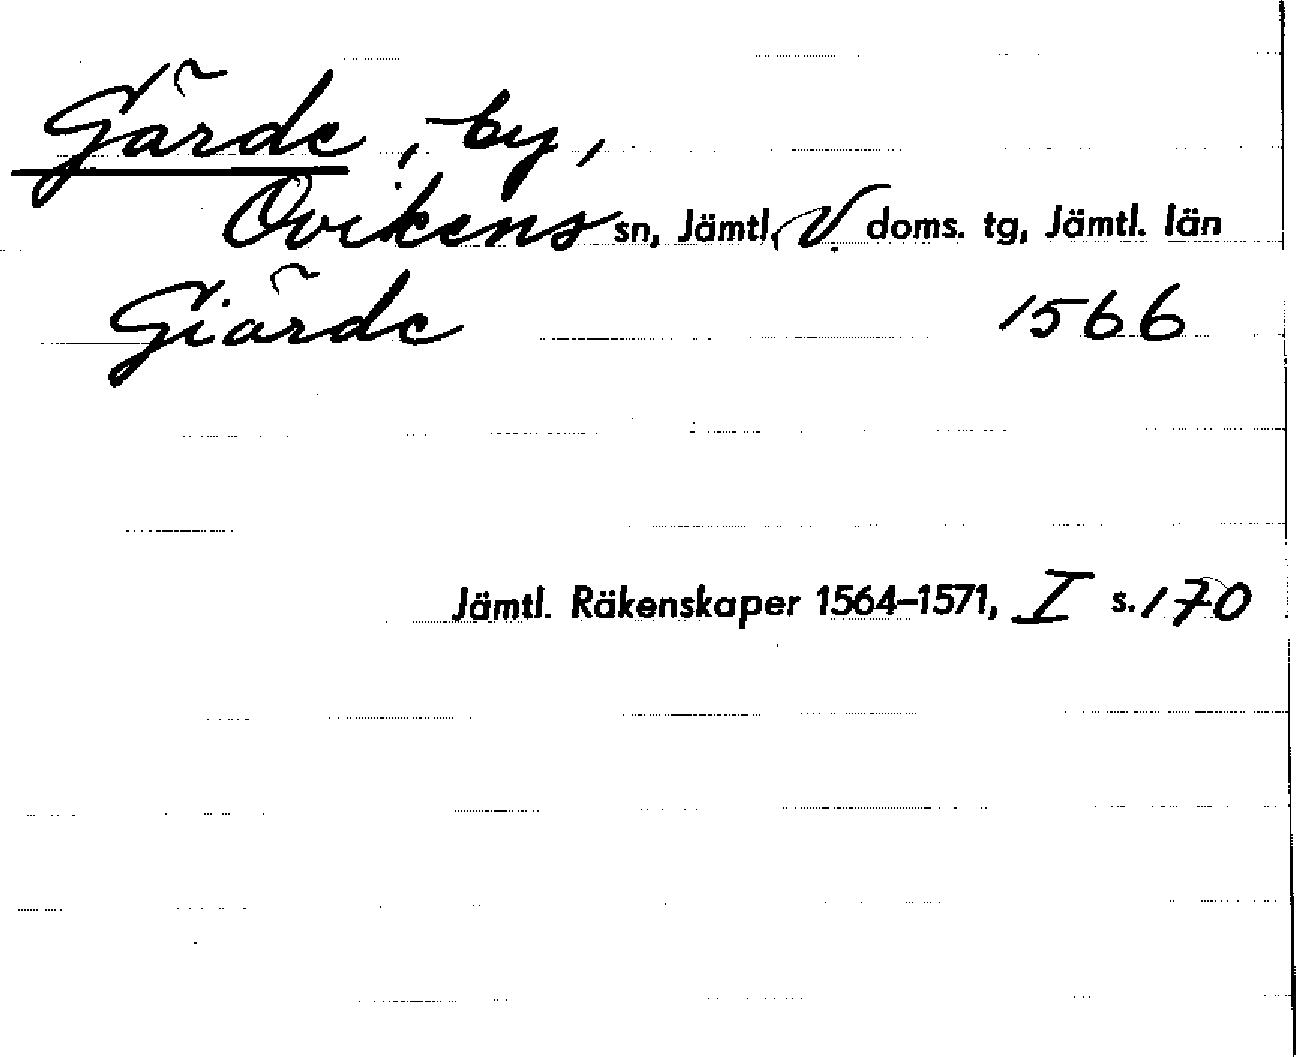 Gärde, by,
Ovikens sn, Jämtl. V. doms. tg, Jämtl. län
Giärde 1566
Jämtl. Räkenskaper 1564–1571, I s. 170